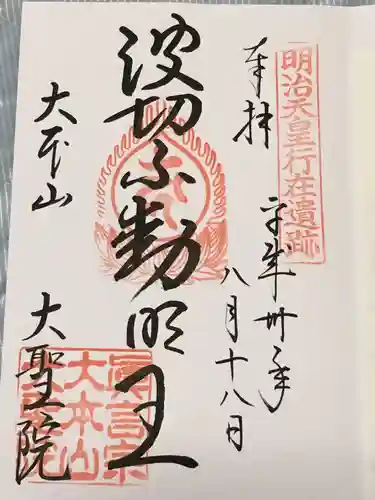 明治天皇行在遺跡
奉拝
平成卅年
八月十八日
波切不動明王
大本山
大聖院
眞言宗
大本山